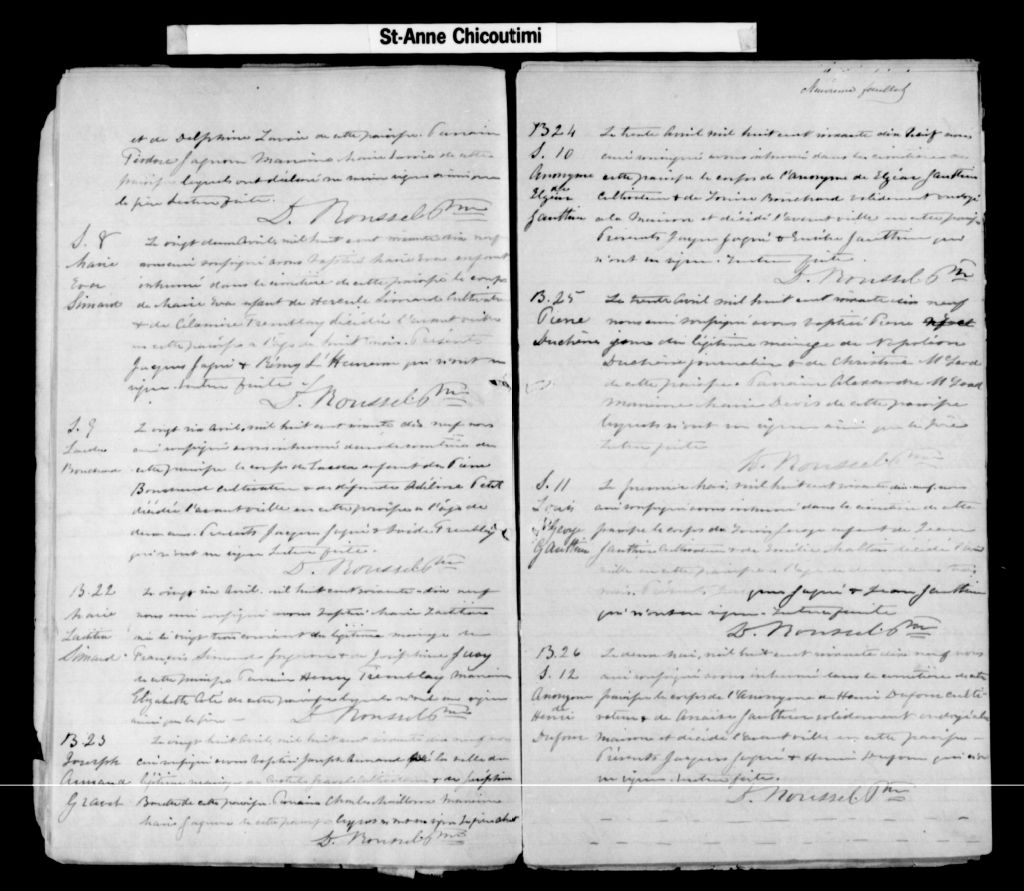 St-Anne Chicoutimi
et de Delphine Lavoie de cette paroisse. Parrain
Marraine Marie de cette
paroisse lesquels ont déclaré ne savoir signer ainsi que
le père. Lecture faite.
D. Roussel Ptre
S. 8
Marie
Eva
Simard
Le vingt deux Avril, mil huit cent soixante dix neuf
nous curé soussigné avons baptisé Marie Eva enfant
inhumé dans le cimetière de cette paroisse le corps
de Marie Eva enfant de Hercule Simard Cultivateur
& de Célamire Tremblay décédée l'avant veille
en cette paroisse à l'âge de huit mois. Présents
Jacques & Rémy qui n'ont su
signer. Lecture faite.
D. Roussel Ptre
S. 9
Bouchard
Le vingt six Avril, mil huit cent soixante dix neuf nous
curé soussigné avons inhumé dans le cimetière de
cette paroisse le corps de enfant de Pierre
Bouchard Cultivateur & de défunte Petit
décédée l'avant veille en cette paroisse à l'âge de
deux ans. Présents Jacques & Tremblay
qui n'ont su signer. Lecture faite.
D. Roussel Ptre
B. 22
Marie
Simard
Le vingt six Avril, mil huit cent soixante dix neuf
nous curé soussigné avons baptisé Marie
née le vingt trois courant du légitime mariage de
François Simard & de Joséphine
de cette paroisse. Parrain Henry Tremblay marraine
Elizabeth Coté de cette paroisse lesquels n'ont su signer
ainsi que le père —
D. Roussel Ptre
B. 23
Joseph
Armand
Gravel
Le vingt huit Avril, mil huit cent soixante dix neuf nous
curé soussigné avons baptisé Joseph Armand né la veille du
légitime mariage de Gravel Cultivateur & de Joséphine
de cette paroisse. Parrain Charles marraine
Marie de cette paroisse lesquels n'ont su signer
D. Roussel Ptre
Neuvième feuillet
B 24
S. 10
Anonyme
de
Elzéar
Gauthier
Le trente Avril mil huit cent soixante dix neuf nous
curé soussigné avons inhumé dans le cimetière de
cette paroisse le corps de l'Anonyme de Elzéar Gauthier
Cultivateur & de Louise Bouchard validement ondoyé
à la Maison et décédé l'avant veille en cette paroisse
Présents Jacques & Gauthier qui
n'ont su signer. Lecture faite.
D. Roussel Ptre
B. 25
Pierre
Duchêne
Le trente Avril mil huit cent soixante dix neuf
nous curé soussigné avons baptisé Pierre
du légitime mariage de Napoléon
Duchêne journalier & de Christine McLeod
de cette paroisse. Parrain Alexandre McLeod
marraine Marie de cette paroisse
lesquels n'ont su signer ainsi que le père
Lecture faite
D. Roussel Ptre
S. 11
Louis
George
Gauthier
Le premier Mai, mil huit cent soixante dix neuf nous
curé soussigné avons inhumé dans le cimetière de cette
paroisse le corps de Louis George enfant de Jean
Gauthier Cultivateur & de Emilie Maltais décédé l'avant
veille en cette paroisse à l'âge de
mois. Présents Jacques & Jean Gauthier
qui n'ont su signer. Lecture faite
D. Roussel Ptre
B. 26
S. 12
Anonyme
de
Henri
Dufour
Le deux Mai, mil huit cent soixante dix neuf nous
curé soussigné avons inhumé dans le cimetière de cette
paroisse le corps de l'Anonyme de Henri Dufour culti-
vateur & de Gauthier validement ondoyé à la
maison et décédé l'avant veille en cette paroisse —
Présents Jacques & Henri Dufour qui n'ont
su signer. Lecture faite.
D. Roussel Ptre